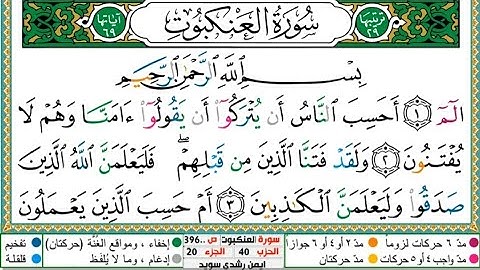 ترتيبها ٢٩ سُورَةُ العَنكَبُوت آياتها ٦٩
بِسْمِ ٱللَّهِ ٱلرَّحْمَٰنِ ٱلرَّحِيمِ
الٓمٓ ١ أَحَسِبَ ٱلنَّاسُ أَن يُتْرَكُوٓا۟ أَن يَقُولُوٓا۟ ءَامَنَّا وَهُمْ لَا
يُفْتَنُونَ ٢ وَلَقَدْ فَتَنَّا ٱلَّذِينَ مِن قَبْلِهِمْ ۖ فَلَيَعْلَمَنَّ ٱللَّهُ ٱلَّذِينَ
صَدَقُوا۟ وَلَيَعْلَمَنَّ ٱلْكَٰذِبِينَ ٣ أَمْ حَسِبَ ٱلَّذِينَ يَعْمَلُونَ
مدّ ٦ حركات لزوماً مدّ ٢ أو ٤ أو ٦ جوازاً سورة العنكبوت ص ..396 إخفاء، ومواقع الغُنَّة (حركتان) تفخيم
مدّ واجب ٤ أو ٥ حركات مدّ حركتان الحزب 40 الجزء 20 إدغام، وما لا يُلفَظ قلقلة
ايمن رشدي سويد